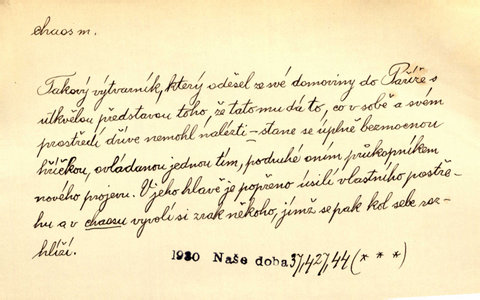 chaos m.
Takový výtvarník, který odešel ze své domoviny do Paříže s
útkvělou představou toho, že tato mu dá to, co v sobě a svém
prostředí dříve nemohl nalézti – stane se úplně bezmocnou
hříčkou, ovládanou jednou tím, podruhé oním průkopníkem
nového projevu. V jeho hlavě je popřeno úsilí vlastního postře-
hu a v chaosu vyvolí si zrak někoho, jímž se pak kol sebe roz-
hlíží.
1930 Naše doba 37,427,44 (* * *)